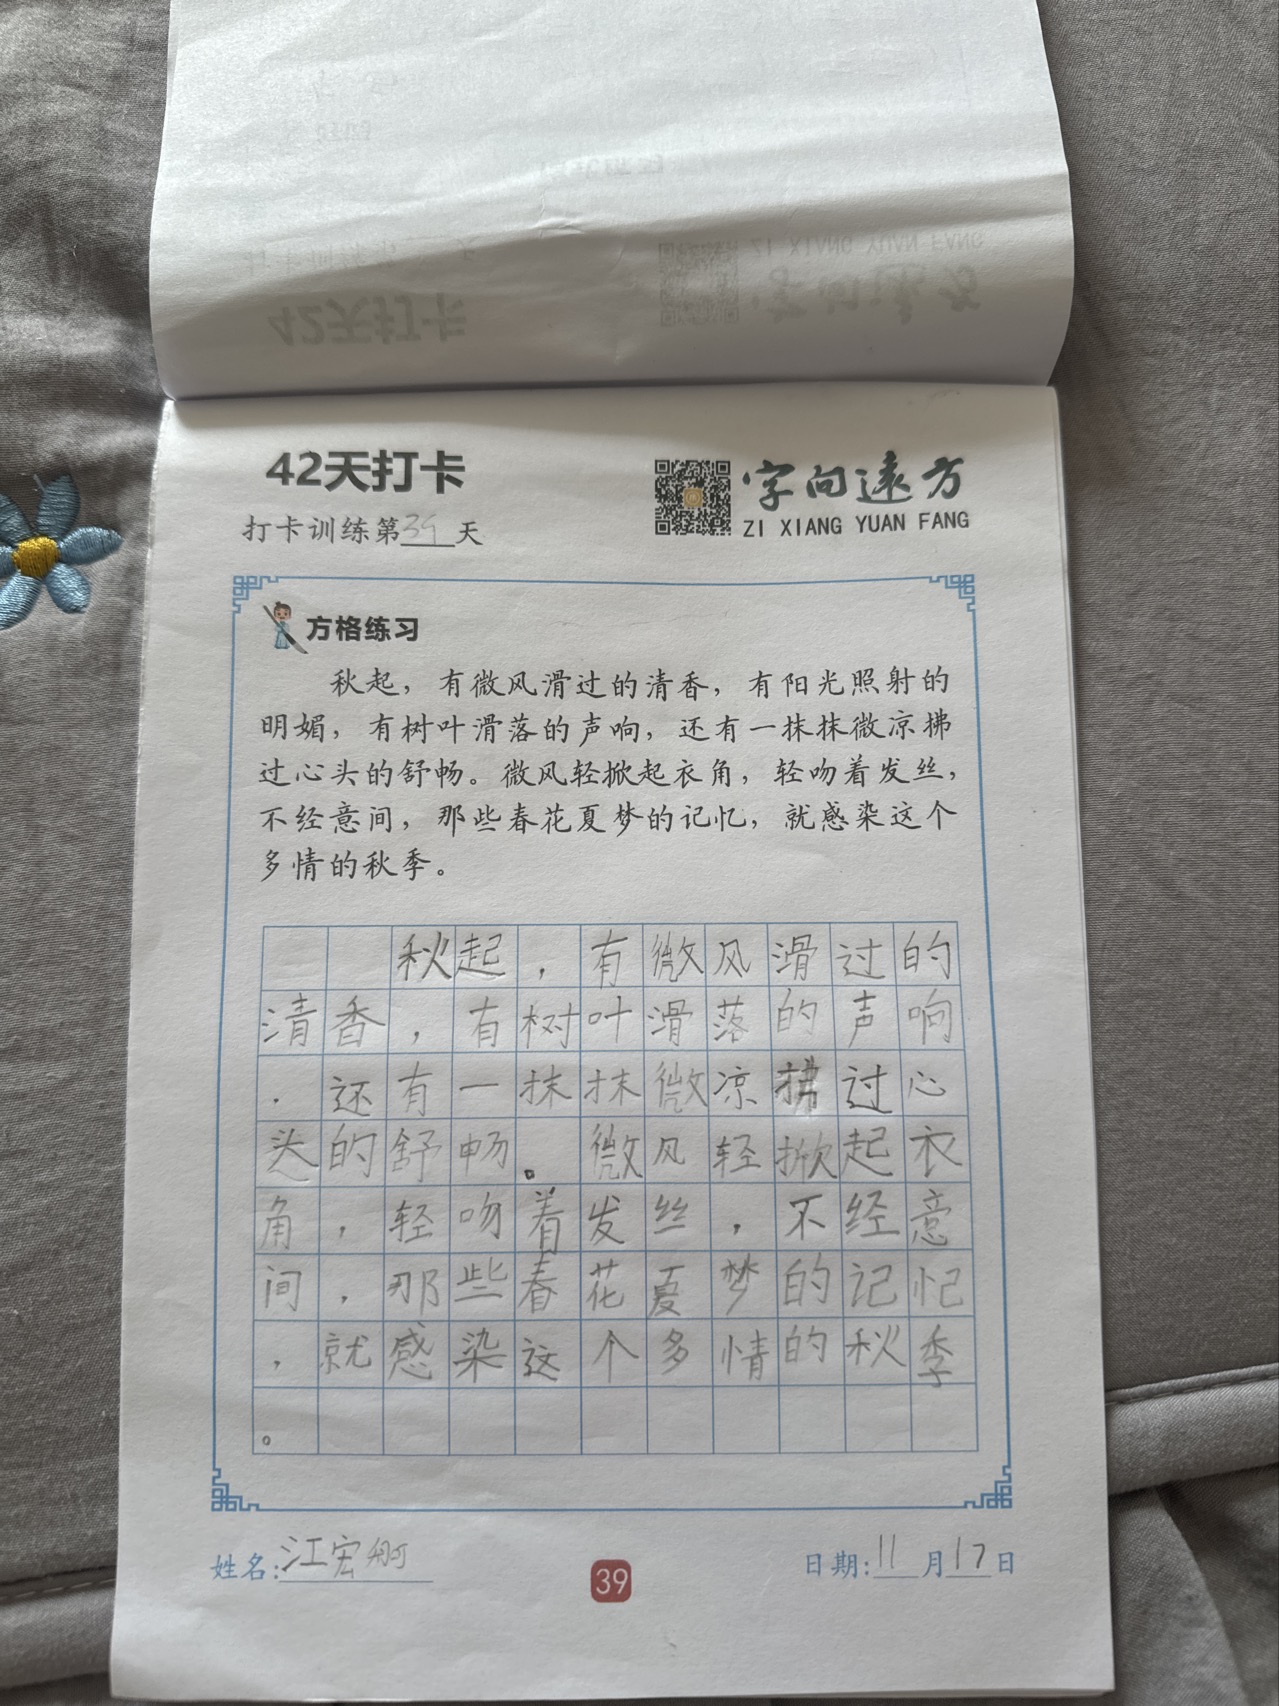 42天打卡
字向远方
ZI XIANG YUAN FANG
打卡训练第39天
方格练习
秋起，有微风滑过的清香，有阳光照射的
明媚，有树叶滑落的声响，还有一抹抹微凉拂
过心头的舒畅。微风轻掀起衣角，轻吻着发丝，
不经意间，那些春花夏梦的记忆，就感染这个
多情的秋季。
秋起，有微风滑过的
清香，有树叶滑落的声响
．还有一抹抹微凉拂过心
头的舒畅。微风轻掀起衣
角，轻吻着发丝，不经意
间，那些春花夏梦的记忆
，就感染这个多情的秋季
。
姓名:江宏
39
日期:11月17日